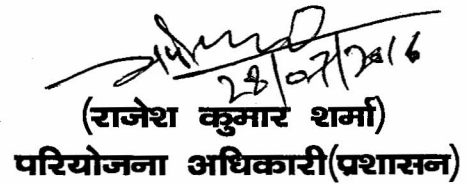 28/07/2016
(राजेश कुमार शर्मा)
परियोजना अधिकारी(प्रशासन)